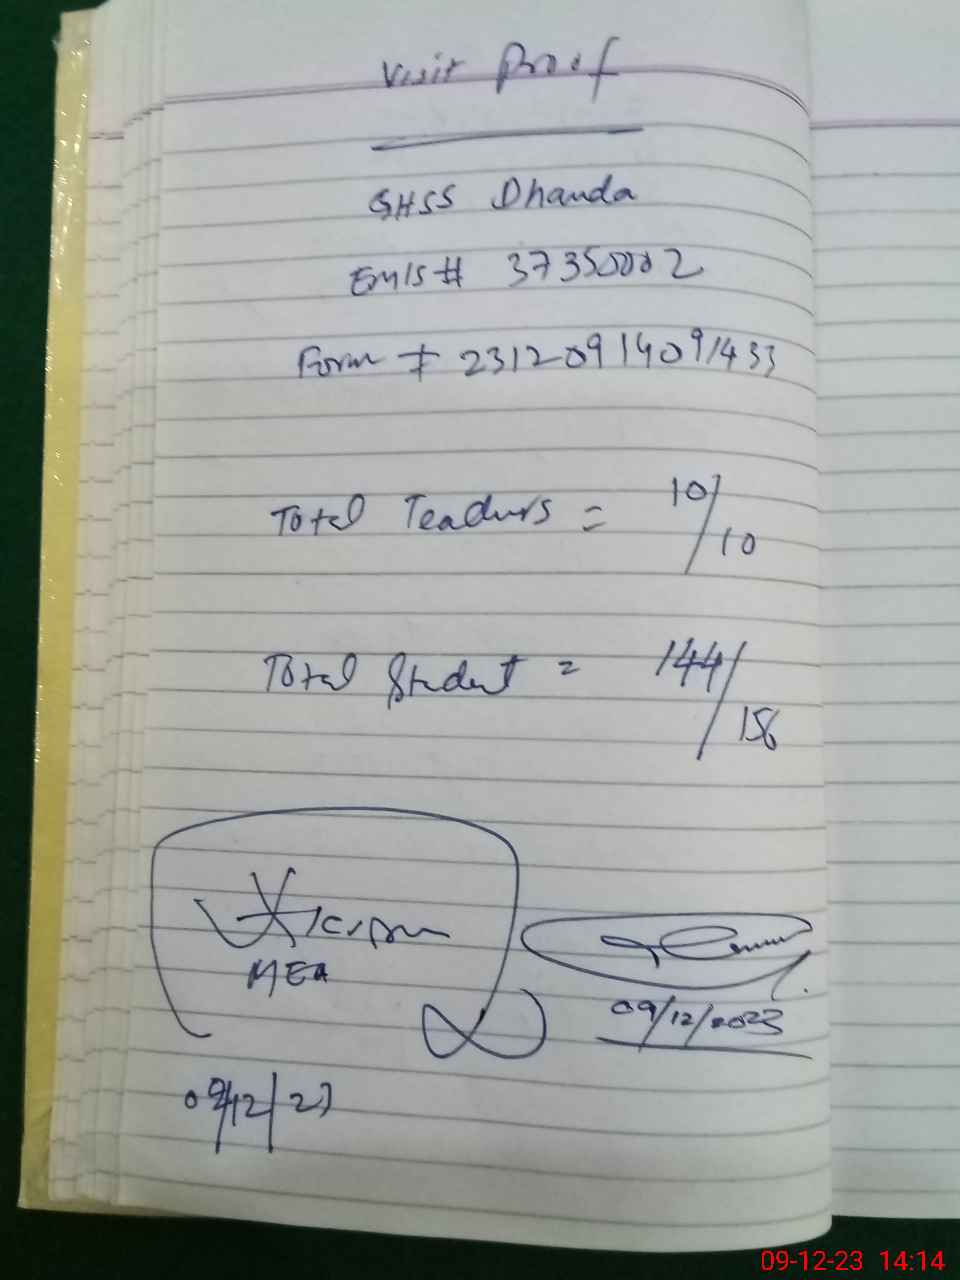 Visit Proof
GHSS Dhanda
EMIS # 37350002
Form # 23120914091433
Total Teachers = 10/10
Total Student = 144/156
MEA
09/12/2023
09/12/23
09-12-23 14:14